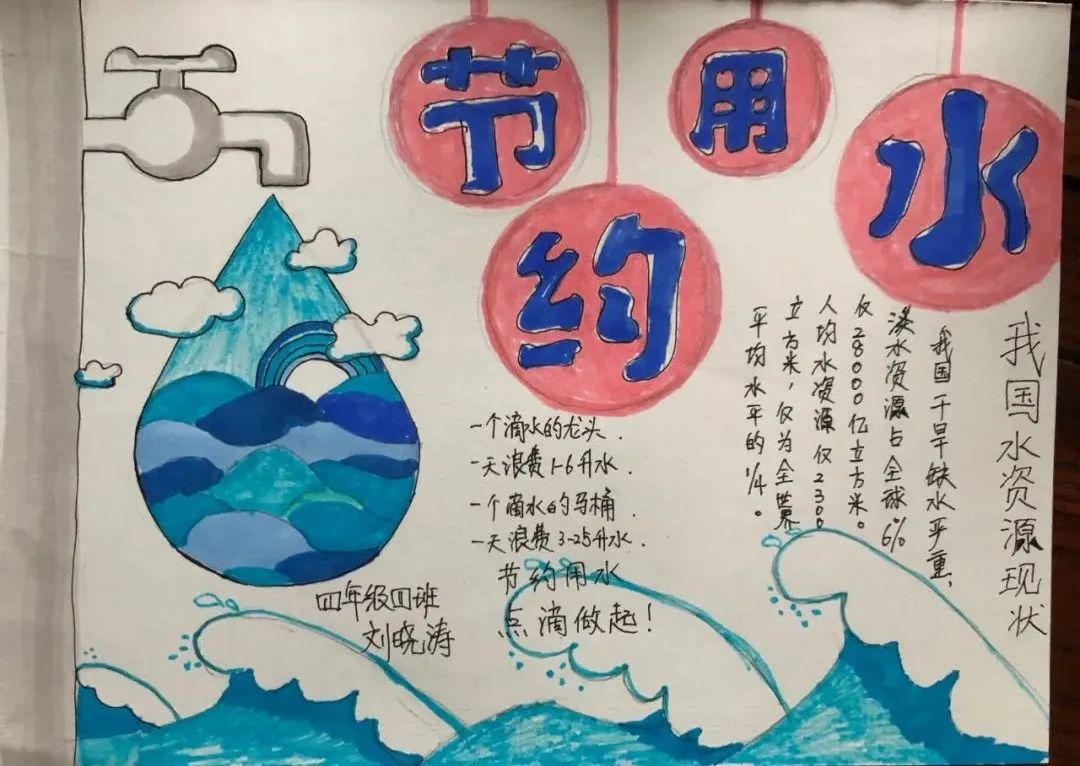 节约用水
我国水资源现状
我国干旱缺水严重,
淡水资源占全球6%
仅28000亿立方米。
人均水资源仅2300
立方米,仅为全世界
平均水平的1/4。
一个滴水的龙头.
一天浪费1-6升水.
一个滴水的马桶.
一天浪费3-25升水.
节约用水
点滴做起!
四年级四班
刘晓涛